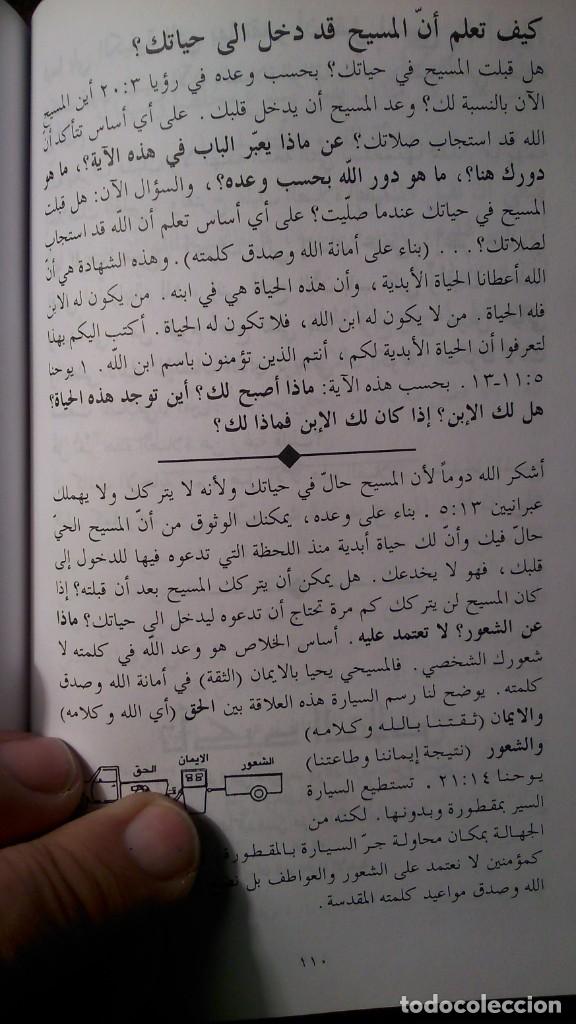 كيف تعلم أنّ المسيح قد دخل الى حياتك؟
هل قبلت المسيح في حياتك؟ بحسب وعده في رؤيا ٢٠:٣ أين المسيح
الآن بالنسبة لك؟ وعد المسيح أن يدخل قلبك. على أي أساس تتأكد أنّ
الله قد استجاب صلاتك؟ عن ماذا يعبّر الباب في هذه الآية؟، ما هو
دورك هنا؟، ما هو دور اللّه بحسب وعده؟، والسؤال الآن: هل قبلت
المسيح في حياتك عندما صلّيت؟ على أي أساس تعلم أن اللّه قد استجاب
لصلاتك؟... (بناء على أمانة الله وصدق كلمته). وهذه الشهادة هي أنّ
الله أعطانا الحياة الأبدية، وأن هذه الحياة هي في ابنه. من يكون له الابن
فله الحياة. من لا يكون له ابن الله، فلا تكون له الحياة. أكتب اليكم بهذا
لتعرفوا أن الحياة الأبدية لكم، أنتم الذين تؤمنون باسم ابن اللّه. ١ يوحنا
٥:١١-١٣. بحسب هذه الآية: ماذا أصبح لك؟ أين توجد هذه الحياة؟
هل لك الإبن؟ إذا كان لك الإبن فماذا لك؟
أشكر الله دوماً لأن المسيح حالّ في حياتك ولأنه لا يتركك ولا يهملك
عبرانيين ٥:١٣. بناء على وعده، يمكنك الوثوق من أنّ المسيح الحيّ
حالّ فيك وأنّ لك حياة أبدية منذ اللحظة التي تدعوه فيها للدخول إلى
قلبك، فهو لا يخدعك. هل يمكن أن يتركك المسيح بعد أن قبلته؟ إذا
كان المسيح لن يتركك كم مرة تحتاج أن تدعوه ليدخل الى حياتك؟ ماذا
عن الشعور؟ لا تعتمد عليه. أساس الخلاص هو وعد اللّه في كلمته لا
شعورك الشخصي. فالمسيحي يحيا بالايمان (الثقة) في أمانة الله وصدق
كلمته. يوضح لنا رسم السيارة هذه العلاقة بين الحق (أي الله وكلامه)
والايمان (ثقتنا بالله وكلامه)
والشعور (نتيجة إيماننا وطاعتنا)
يوحنا ٢١:١٤. تستطيع السيارة
السير بمقطورة وبدونها. لكنه من
الجهالة بمكان محاولة جرّ السيارة بالمقطورة
كمؤمنين لا نعتمد على الشعور والعواطف بل
الله وصدق مواعيد كلمته المقدسة.
الشعور
الايمان
الحق
١١٠
todocoleccion